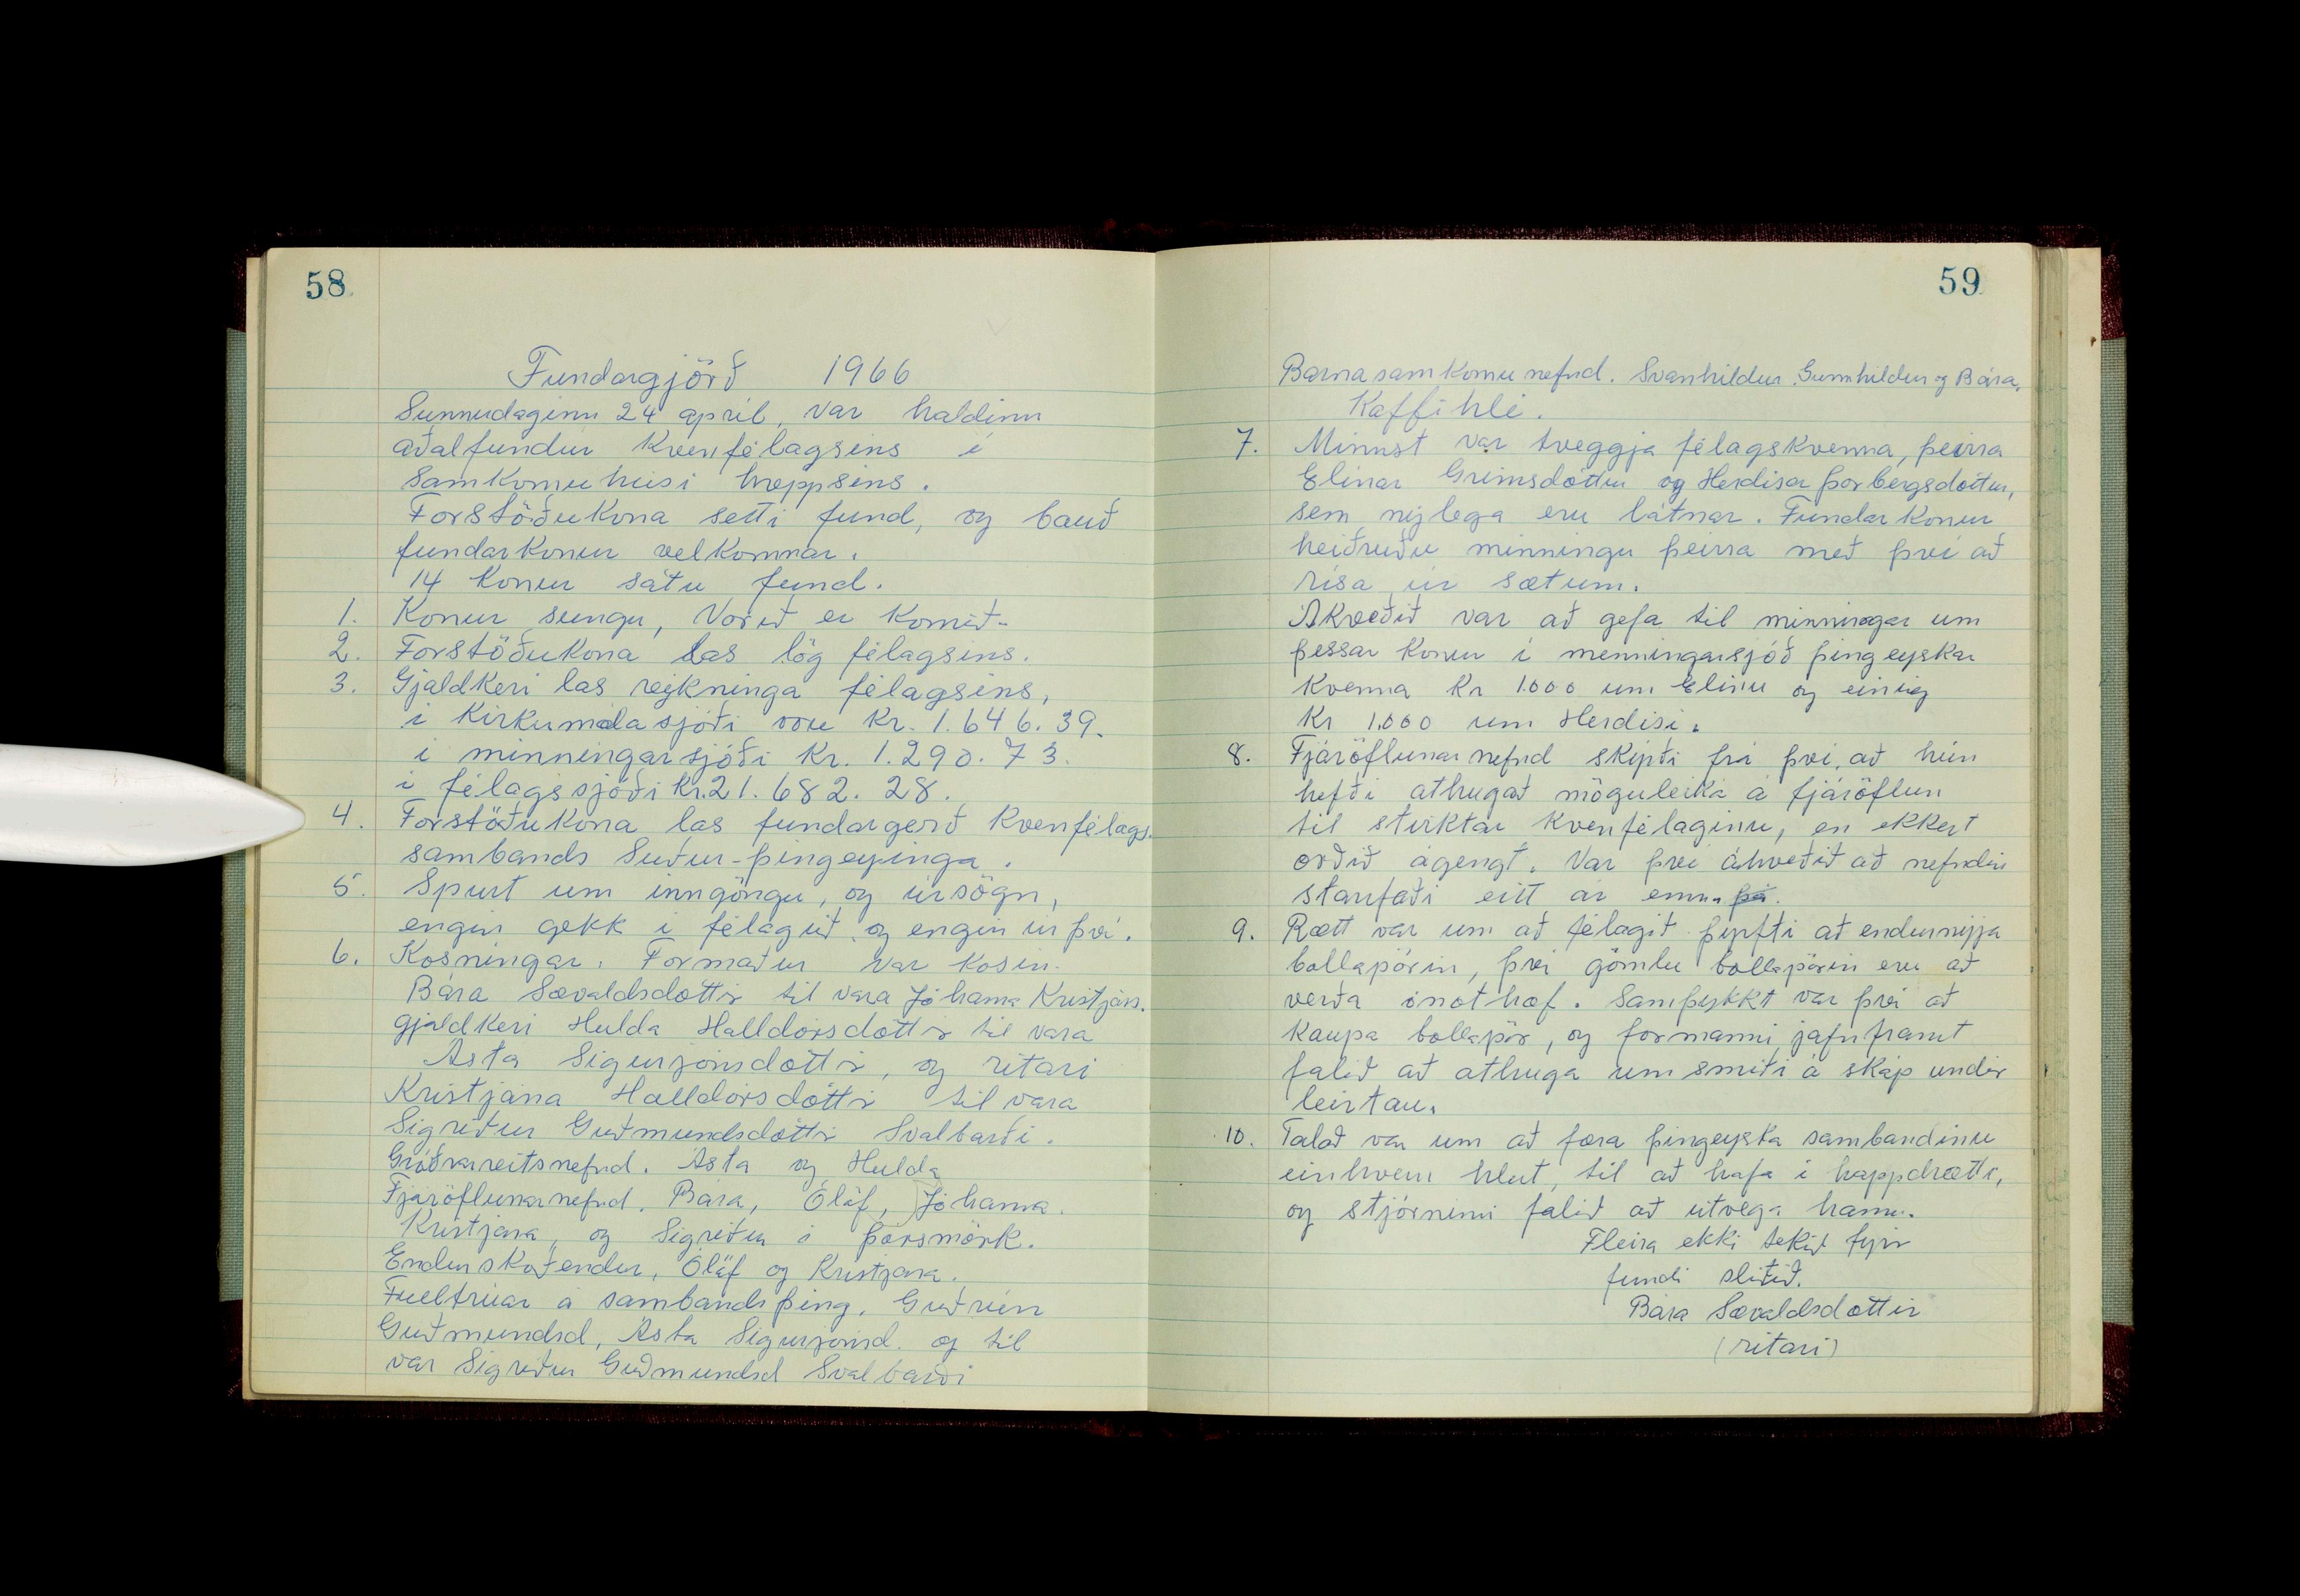 58
Fundargjörð 1966
Sunnudaginn 24 apríl, var haldinn
aðalfundur Kvenfélagsins í
Samkomuhúsi hreppsins.
Forstöðukona setti fund, og bauð
fundarkonur velkomnar.
14 konur sátu fund.
1. Konur sungu, Vorið er komið-
2. Forstöðukona las lög félagsins.
3. Gjaldkeri las reikninga félagsins,
í Kirkumálasjóði voru Kr. 1.646.39.
í minningarsjóði Kr. 1.290.73.
í félagssjóði Kr. 21.682.28.
4. Forstöðukona las fundargerð Kvenfélags.
sambands Suður-þingeyinga.
5. Spurt um inngöngu, og úrsögn,
engin gekk í félagið, og engin úr því.
6. Kosningar. Formaður var kosin.
Bára Sævaldsdóttir til vara Jóhanna Kristjáns.
gjaldkeri Hulda Halldórsdóttir til vara
Ásta Sigurjónsdóttir, og ritari
Kristjana Halldórsdóttir til vara
Sigríður Guðmundsdóttir Svalbarði.
Gróðrareitsnefnd. Ásta og Hulda
Fjáröflunarnefnd. Bára, Ólöf, Jóhanna.
Kristjana, og Sigríður í þórsmörk.
Endurskoðendur, Ólöf og Kristjana.
Fulltrúar á sambandsþing. Guðrún
Guðmundsd, Ásta Sigurjónsd. og til
var Sigríður Guðmundsd Svalbarði
59
Barnasamkomunefnd. Svanhildur, Gunnhildur og Bára.
Kaffihlé.
7. Minnst var tveggja félagskvenna, þeirra
Elínar Grímsdóttur og Herdísar þorbergsdóttur,
sem nýlega eru látnar. Fundarkonur
heiðruðu minningu þeirra með því að
rísa úr sætum.
Ákveðið var að gefa til minningar um
þessar konur í menningarsjóð þingeyskar
kvenna Kr 1.000 um Elínu og einnig
Kr 1.000 um Herdísi.
8. Fjáröflunarnefnd skýrði frá því, að hún
hefði athugað möguleika á fjáröflun
til styrktar kvenfélaginu, en ekkert
orðið ágengt. Var því ákveðið að nefndin
starfaði eitt ár enn.
9. Rætt var um að félagið þyrfti að endurnýja
bollapörin, því gömlu bollapörin eru að
verða ónothæf. Samþykkt var því að
kaupa bollapör, og formanni jafnframt
falið að athuga um smíði á skáp undir
leirtau.
10. Talað var um að færa þingeyska sambandinu
einhvern hlut, til að hafa í happdrætti,
og stjórninni falið að útvega hann.
Fleira ekki tekið fyrir
fundi slitið.
Bára Sævaldsdóttir
(ritari)